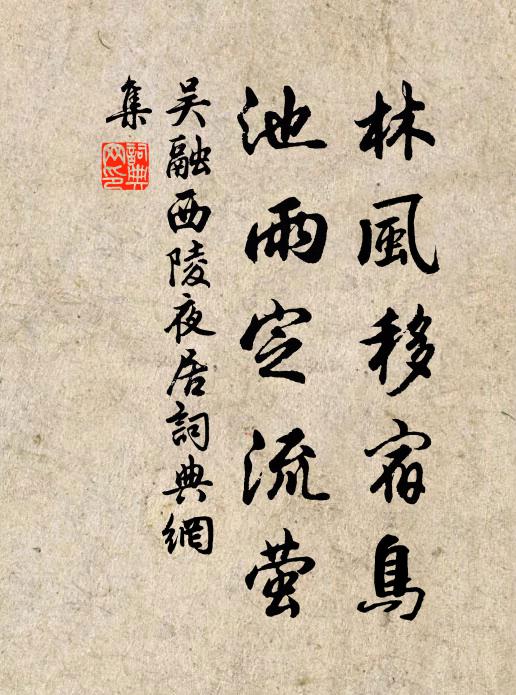 林風移宿鳥
池雨定流螢
吳融西陵夜居詞典網
集
詞典
网印